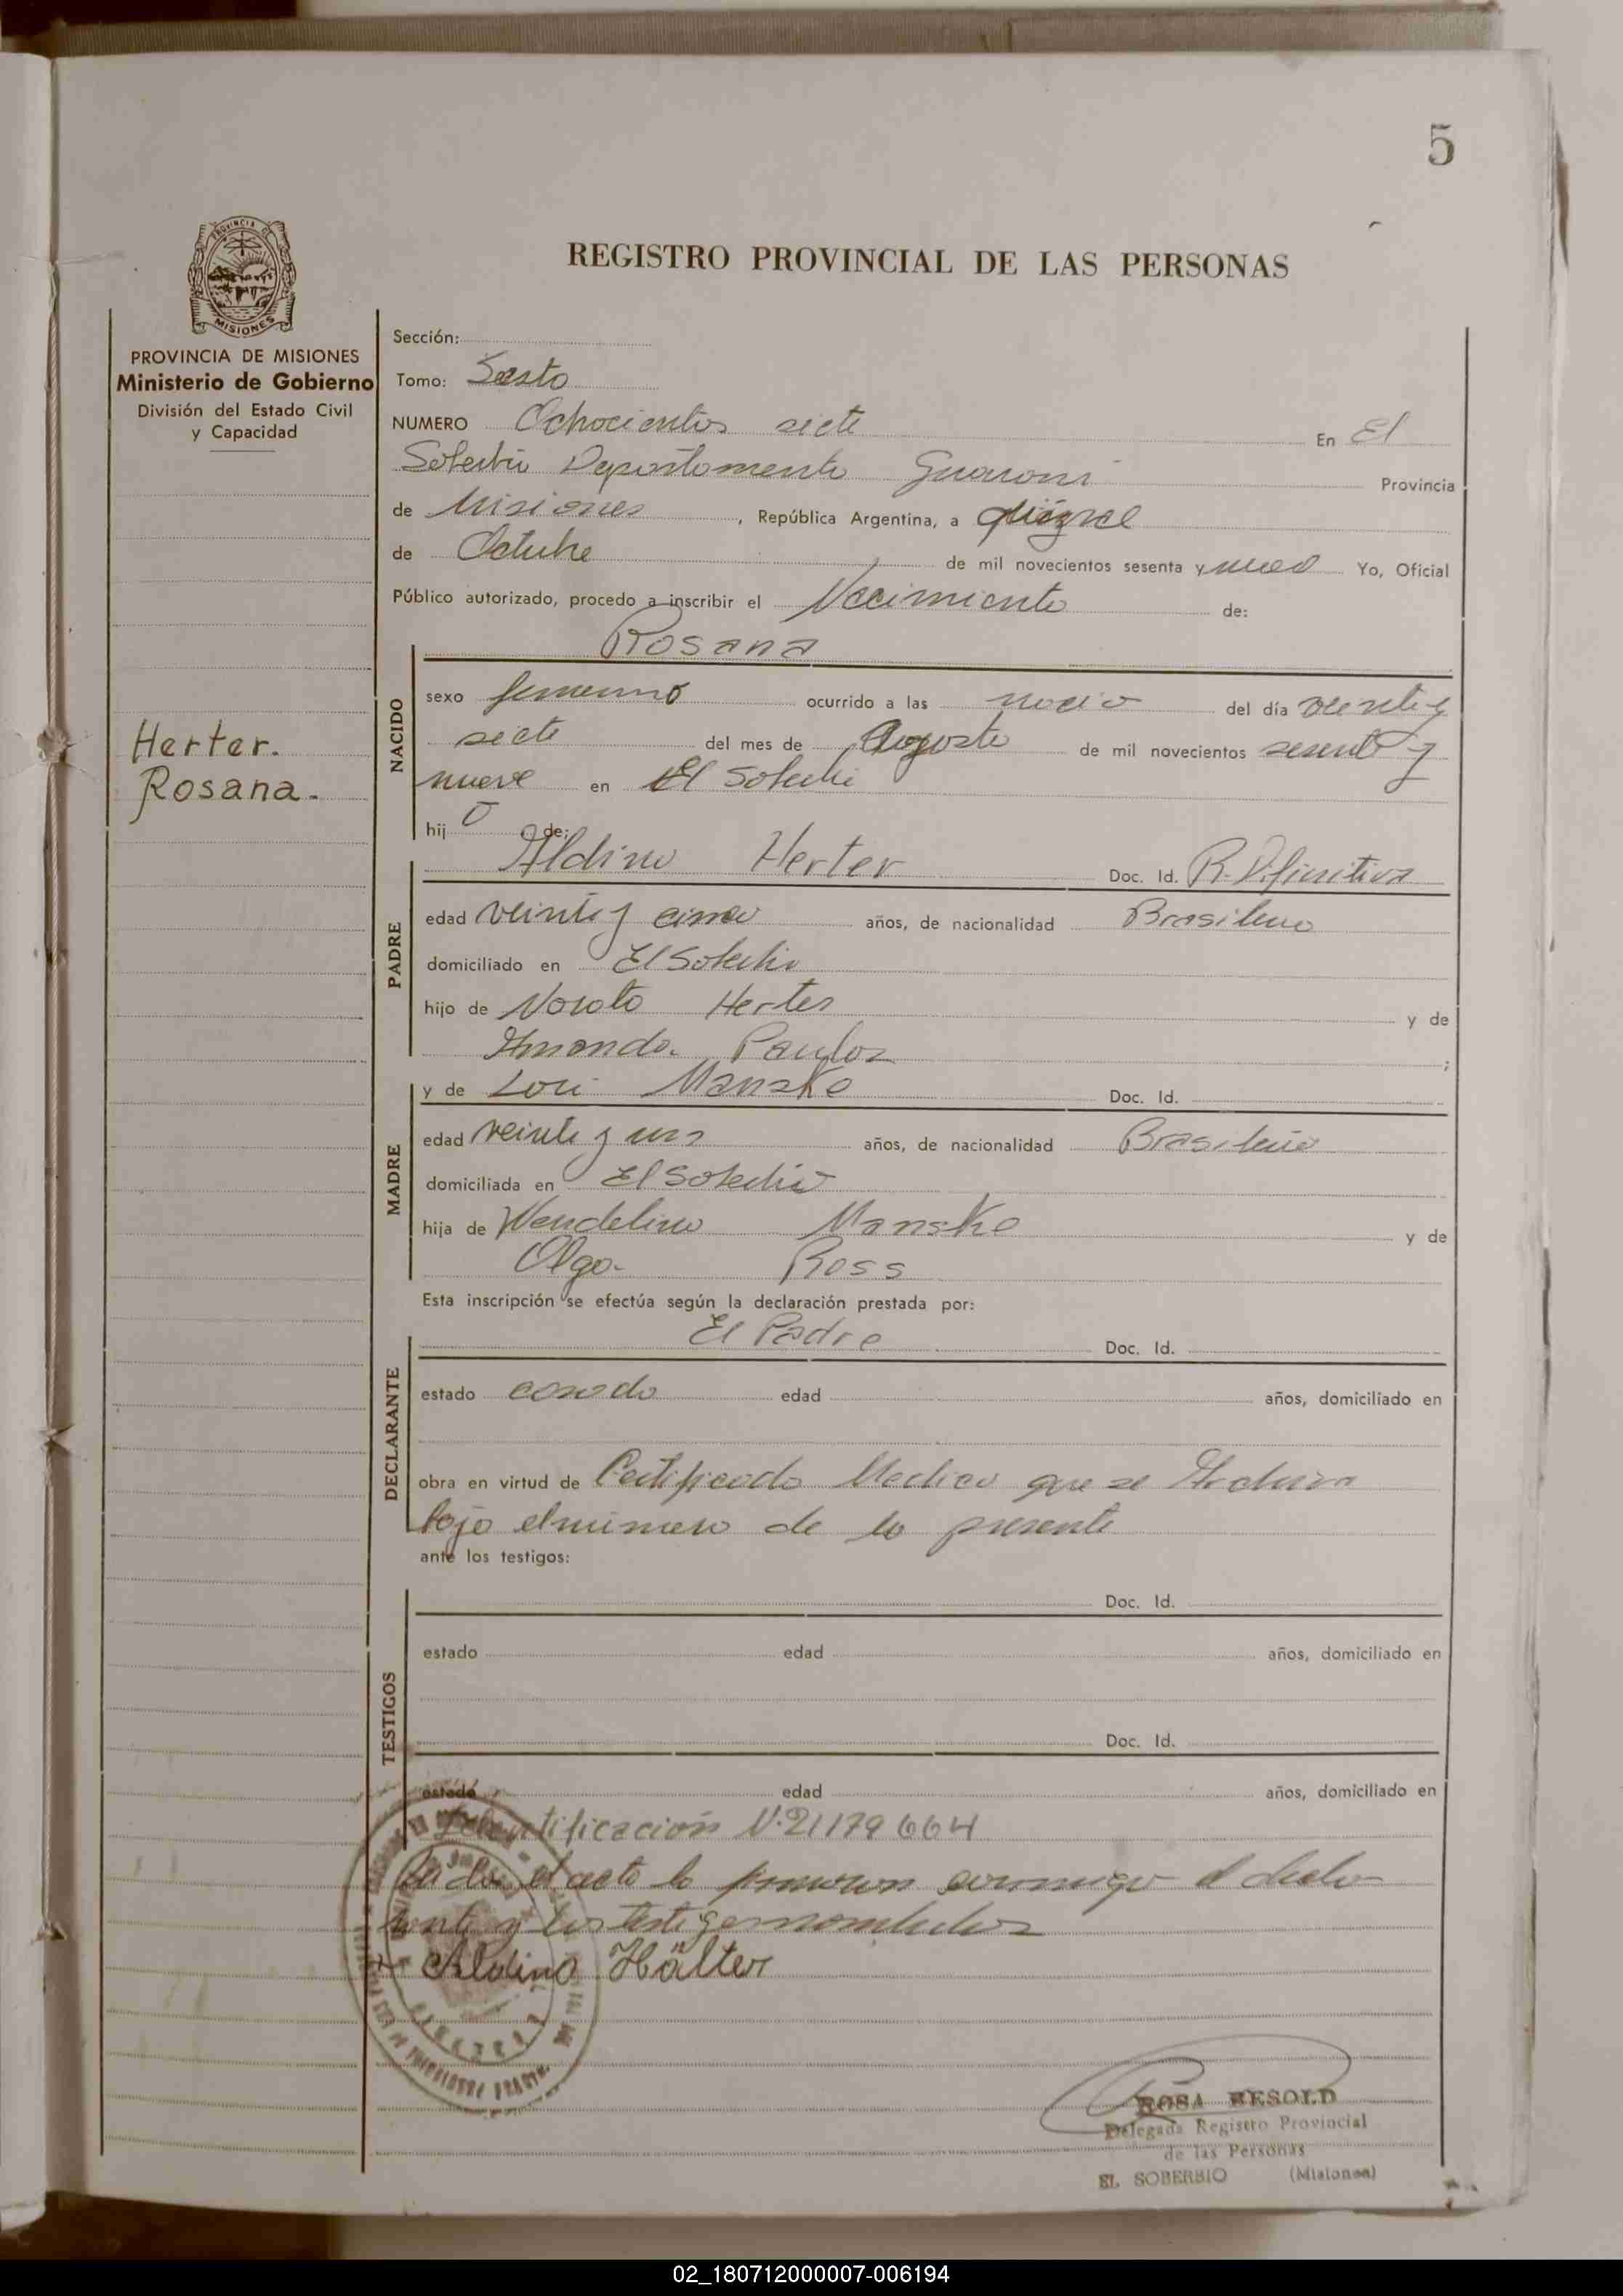 5
REGISTRO PROVINCIAL DE LAS PERSONAS
PROVINCIA DE
MISIONES
PROVINCIA DE MISIONES
Ministerio de Gobierno
División del Estado Civil
y Capacidad
Herter.
Rosana.-
Sección:
Tomo: Sexto
NUMERO Ochocientos siete En El
Soberbio Departamento Guarani Provincia
de Misiones, República Argentina, a
de Octubre de mil novecientos sesenta y nueve Yo, Oficial
Público autorizado, procedo a inscribir el Nacimiento de:
Rosana
NACIDO
sexo femenino ocurrido a las del día veinte y
siete del mes de Agosto de mil novecientos sesenta y
nueve en El Soberbio
hij de:
PADRE
Aldino Herter Doc. Id. R. Difinitiva
edad veinte y cinco años, de nacionalidad Brasileno
domiciliado en El Soberbio
hijo de Herter y de
;
MADRE
y de Lori Manske Doc. Id.
edad veinte y uno años, de nacionalidad Brasileño
domiciliada en El Soberbio
hija de Wendelino Manske y de
Olga Ross
Esta inscripción se efectúa según la declaración prestada por:
DECLARANTE
El Padre Doc. Id.
estado casado edad años, domiciliado en
obra en virtud de Certificado Medico que se Archiva
bajo el numero de la presente
ante los testigos:
TESTIGOS
Doc. Id.
estado edad años, domiciliado en
Doc. Id.
estado edad años, domiciliado en
Identificación N. 21179664
el acta la firmaron conmigo el decla-
rante y los testigos nombrados
Aldino Hälter
ROSA RESOLD
Delegada Registro Provincial
de las Personas
EL SOBERBIO (Misiones)
02_180712000007-006194